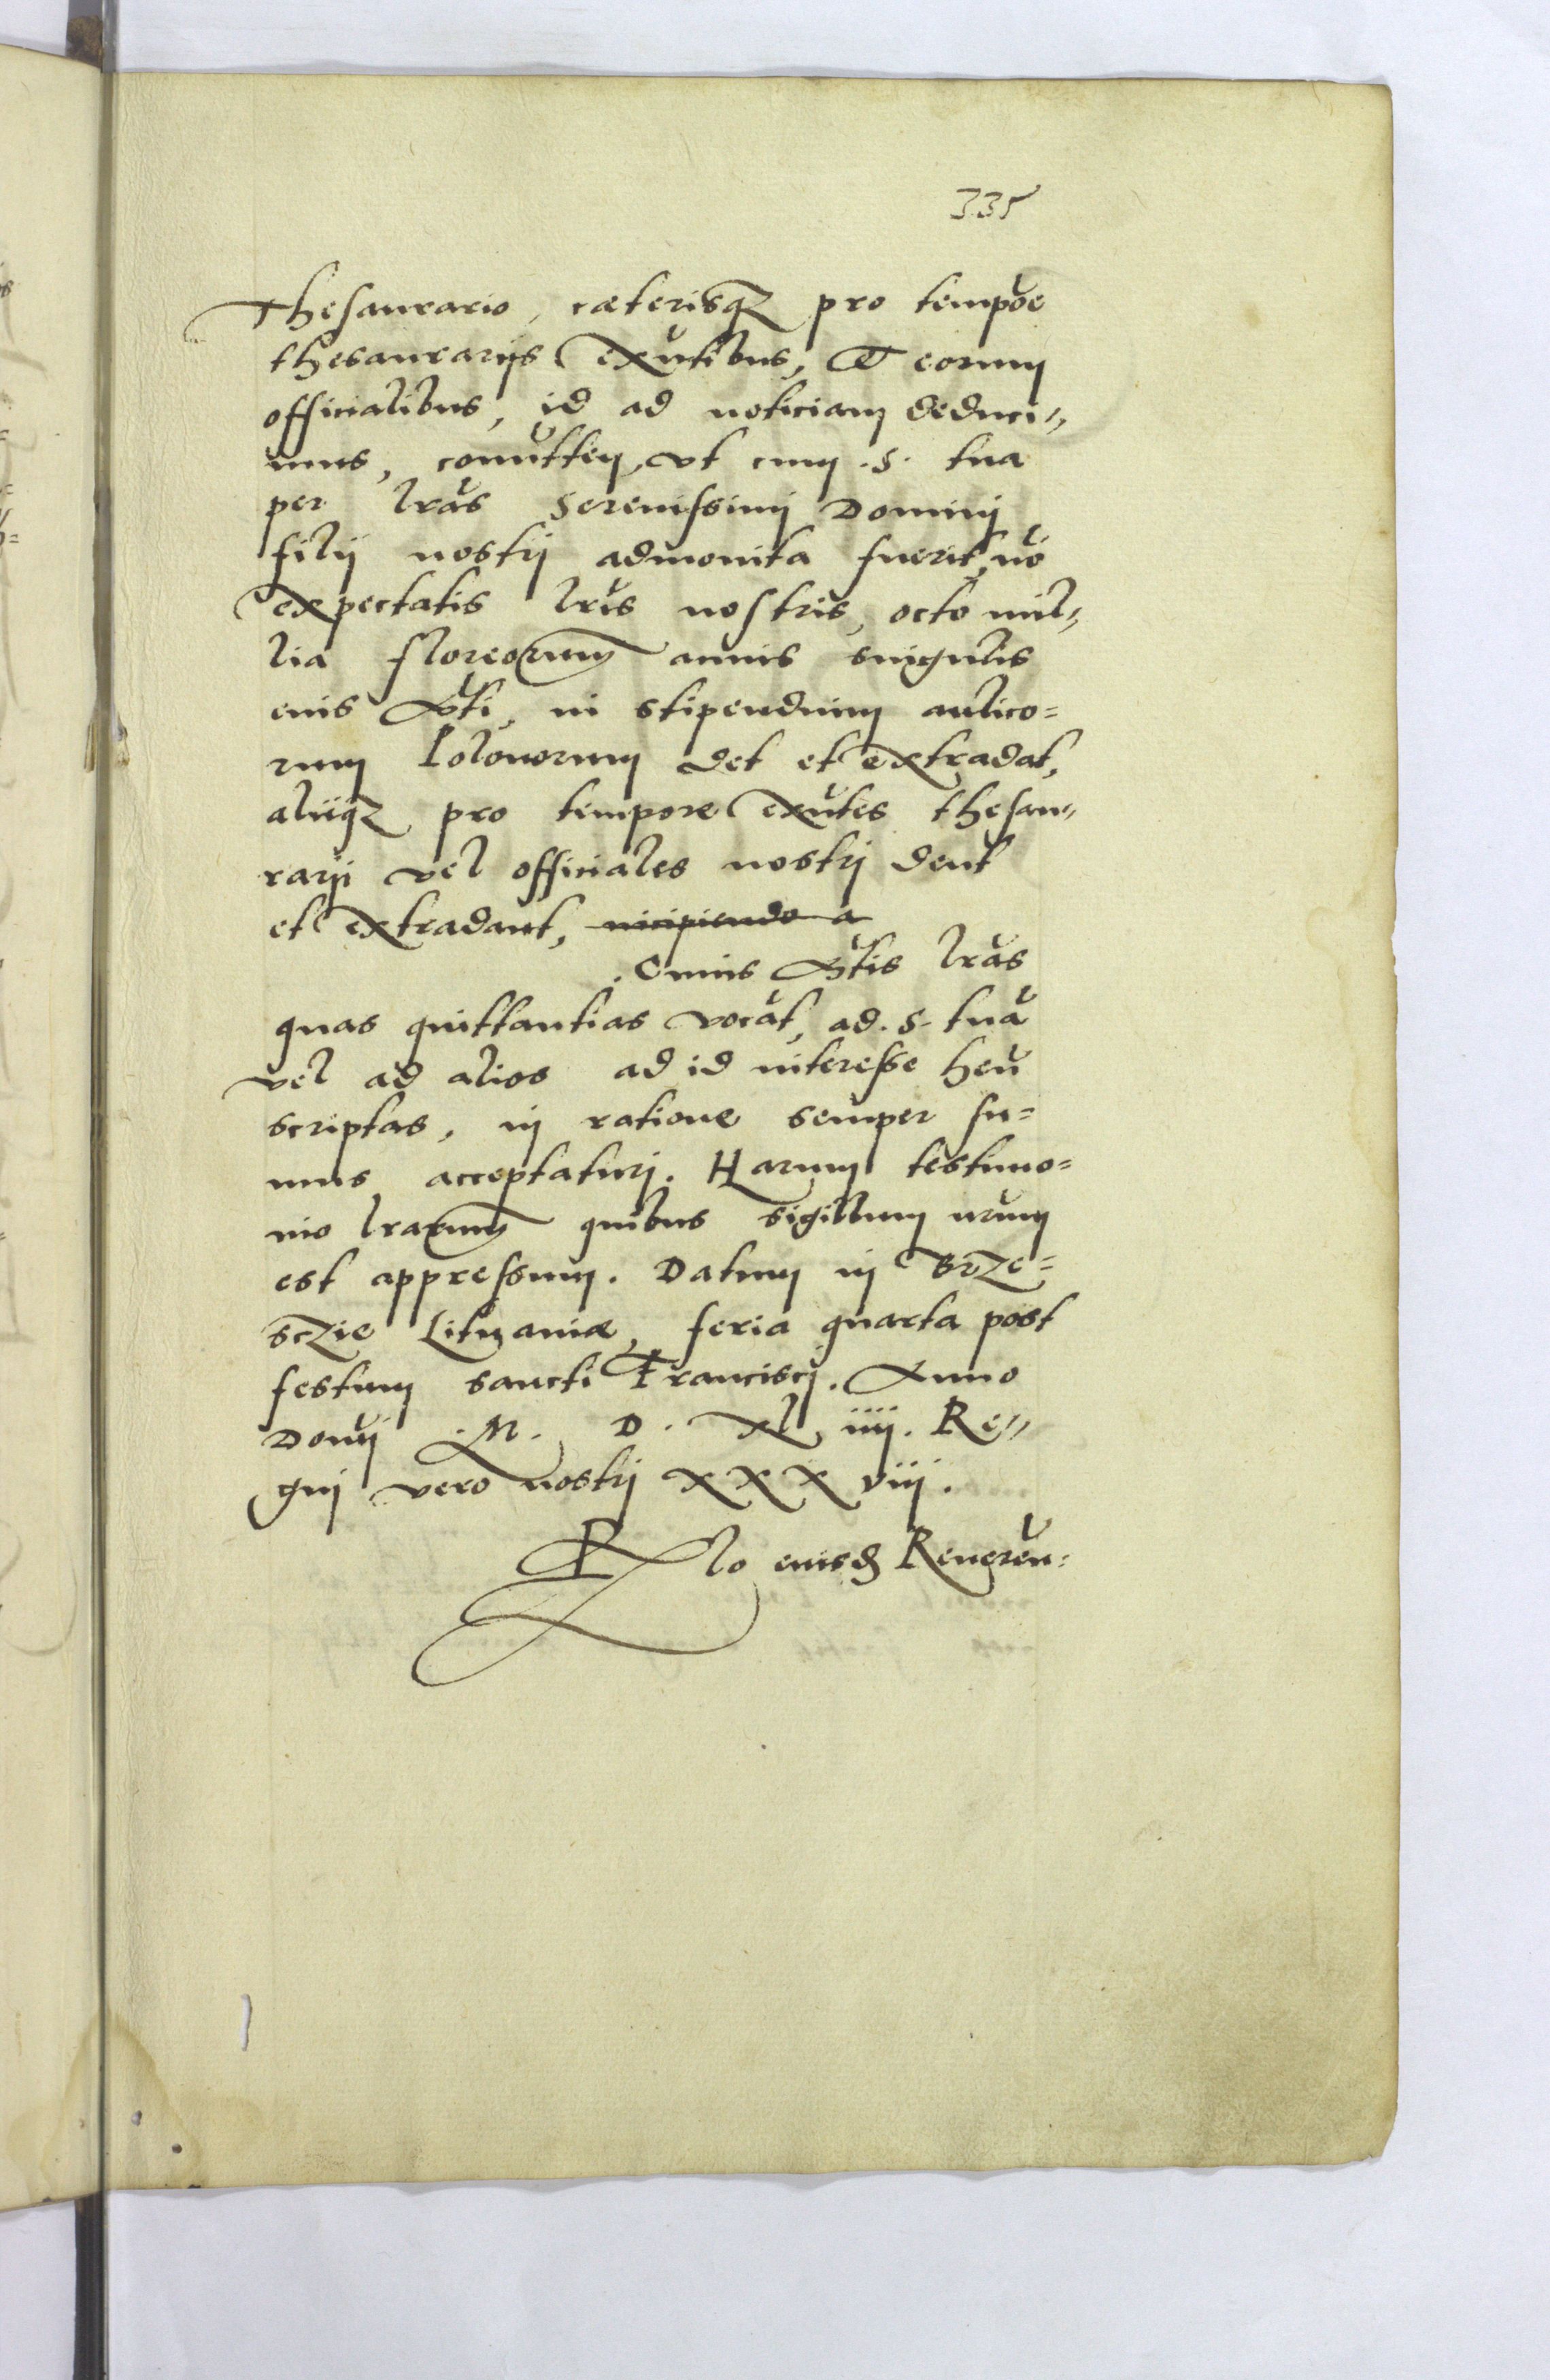 335
Thesaurario, cæterisqȝ pro tempoře
thesaurarijs exňtibus, Et eorum
officialibus, id ad noticiam deduci„
mus, comitten, vt cum .S. tua
per lr̃as Serenissimi Dominj
filij nostrj admonita fuerit, nõ
expectatis lr̃is nostris, octo mil„
lia floreorum annis singulis
eius Mt̃i, in stipendium aulico=
rum Polonorum det et extradat,
alijqȝ pro tempore exñtes thesau„
rarij vel officiales nostrj dent
et extradant, incipiendo a
. Cuius Mt̃is lr̃as
quas quittantias vocãt, ad .S. tuã
vel ad alios ad id interesse heñ
scriptas, in ratione semper su=
mus acceptaturj. Harum testimo=
nio lr̃arum quibus sigillum nr̃um
est appressum. Datum in Brze=
sczie Lituaniæ, feria quarta post
festum sancti Franciscj. Anno
Domĩj .M. D. xl iiij. Re„
gnj vero nostrj XXX viij.
Rlo eiusd Reueren̄=